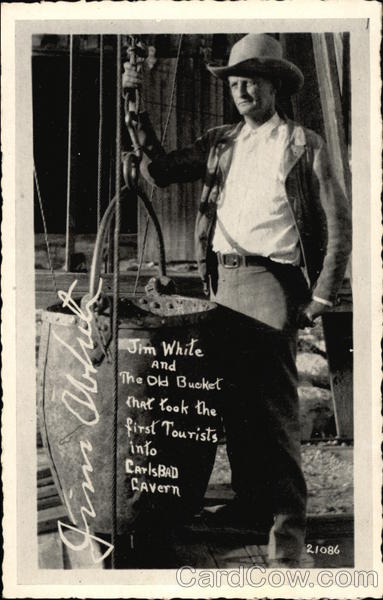 Jim White
Jim White
and
The Old Bucket
that took the
first Tourists
into
CarlsBAD
Cavern
21086
CardCow.com